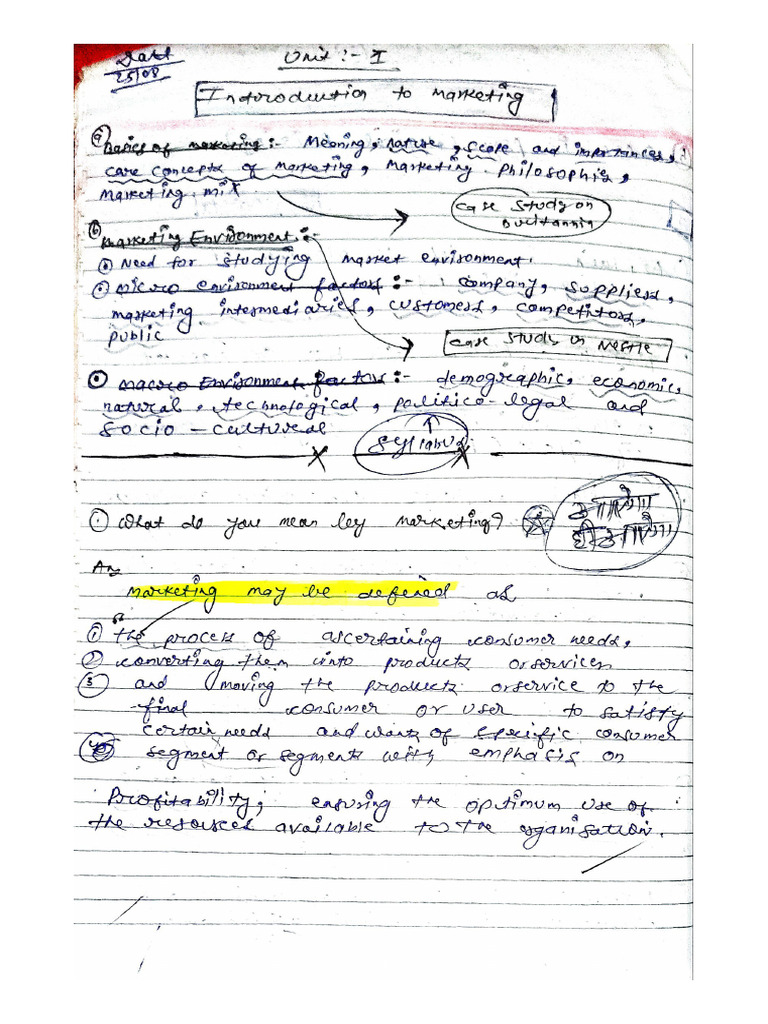 Date
25/08
Unit :- I
Introduction to Marketing
(a) Basics of marketing :- Meaning, nature, scope and importances,
care concepts of marketing, Marketing Philosophies,
Marketing mix
Case Study on
Britannia
(b) Marketing Environment :-
Need for studying market environment.
micro environment factors :- company, suppliers,
marketing intermediaries, customers, competitors,
public
Case Study on Nestle
macro Environment factors :- demographic, economic,
natural, technological, politico-legal and
Socio - cultural
Syllabus
① What do you mean by marketing?
Ans
Marketing may be defined as
① the process of ascertaining consumer needs,
② converting them into products or services
③ and moving the products or service to the
final consumer or user to satisfy
certain needs and wants of specific consumer
④ segment or segments with emphasis on
Profitability, ensuring the optimum use of
the resources available to the organisation.